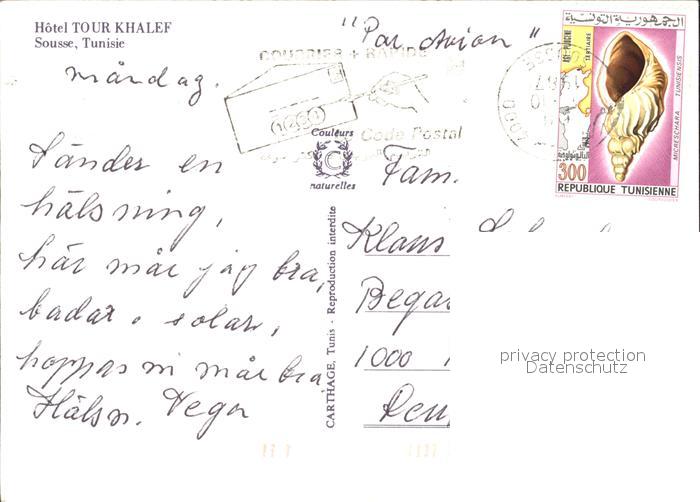 Hôtel TOUR KHALEF
Sousse, Tunisie
måndag.
Sänder en
hälsning,
här mår jag bra,
badar o solar,
hoppas ni mår bra
Hälsn. Vega
"Par Avion"
COURRIER + RAPIDE
Code Postal
Couleurs
C
naturelles
CARTHAGE, Tunis - Reproduction interdite
Fam.
Klaus
Bega
1000
Deu
الجمهورية التونسية
TERTIAIRE
MICRESCHARA TUNISIENSIS
300
REPUBLIQUE TUNISIENNE
privacy protection
Datenschutz